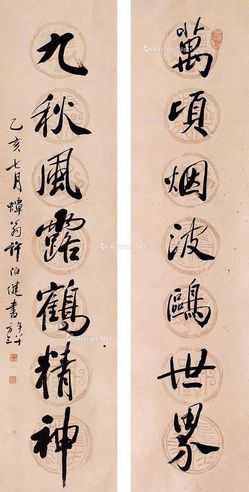 萬頃烟波鷗世界
九秋風露鶴精神
乙亥七月蟫翁許伯健書